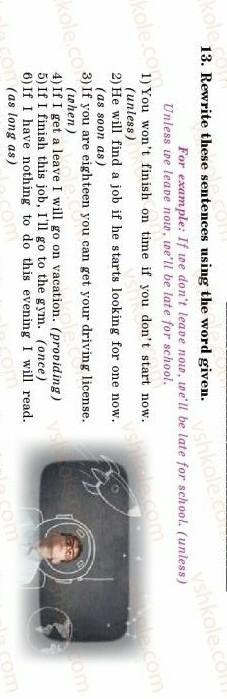 13. Rewrite these sentences using the word given.
For example: If we don't leave now, we'll be late for school. (unless)
Unless we leave now, we'll be late for school.
1) You won't finish on time if you don't start now.
(unless)
2) He will find a job if he starts looking for one now.
(as soon as)
3) If you are eighteen you can get your driving license.
(when)
4) If I get a leave I will go on vacation. (providing)
5) If I finish this job, I'll go to the gym. (once)
6) If I have nothing to do this evening I will read.
(as long as)
vshkole.com